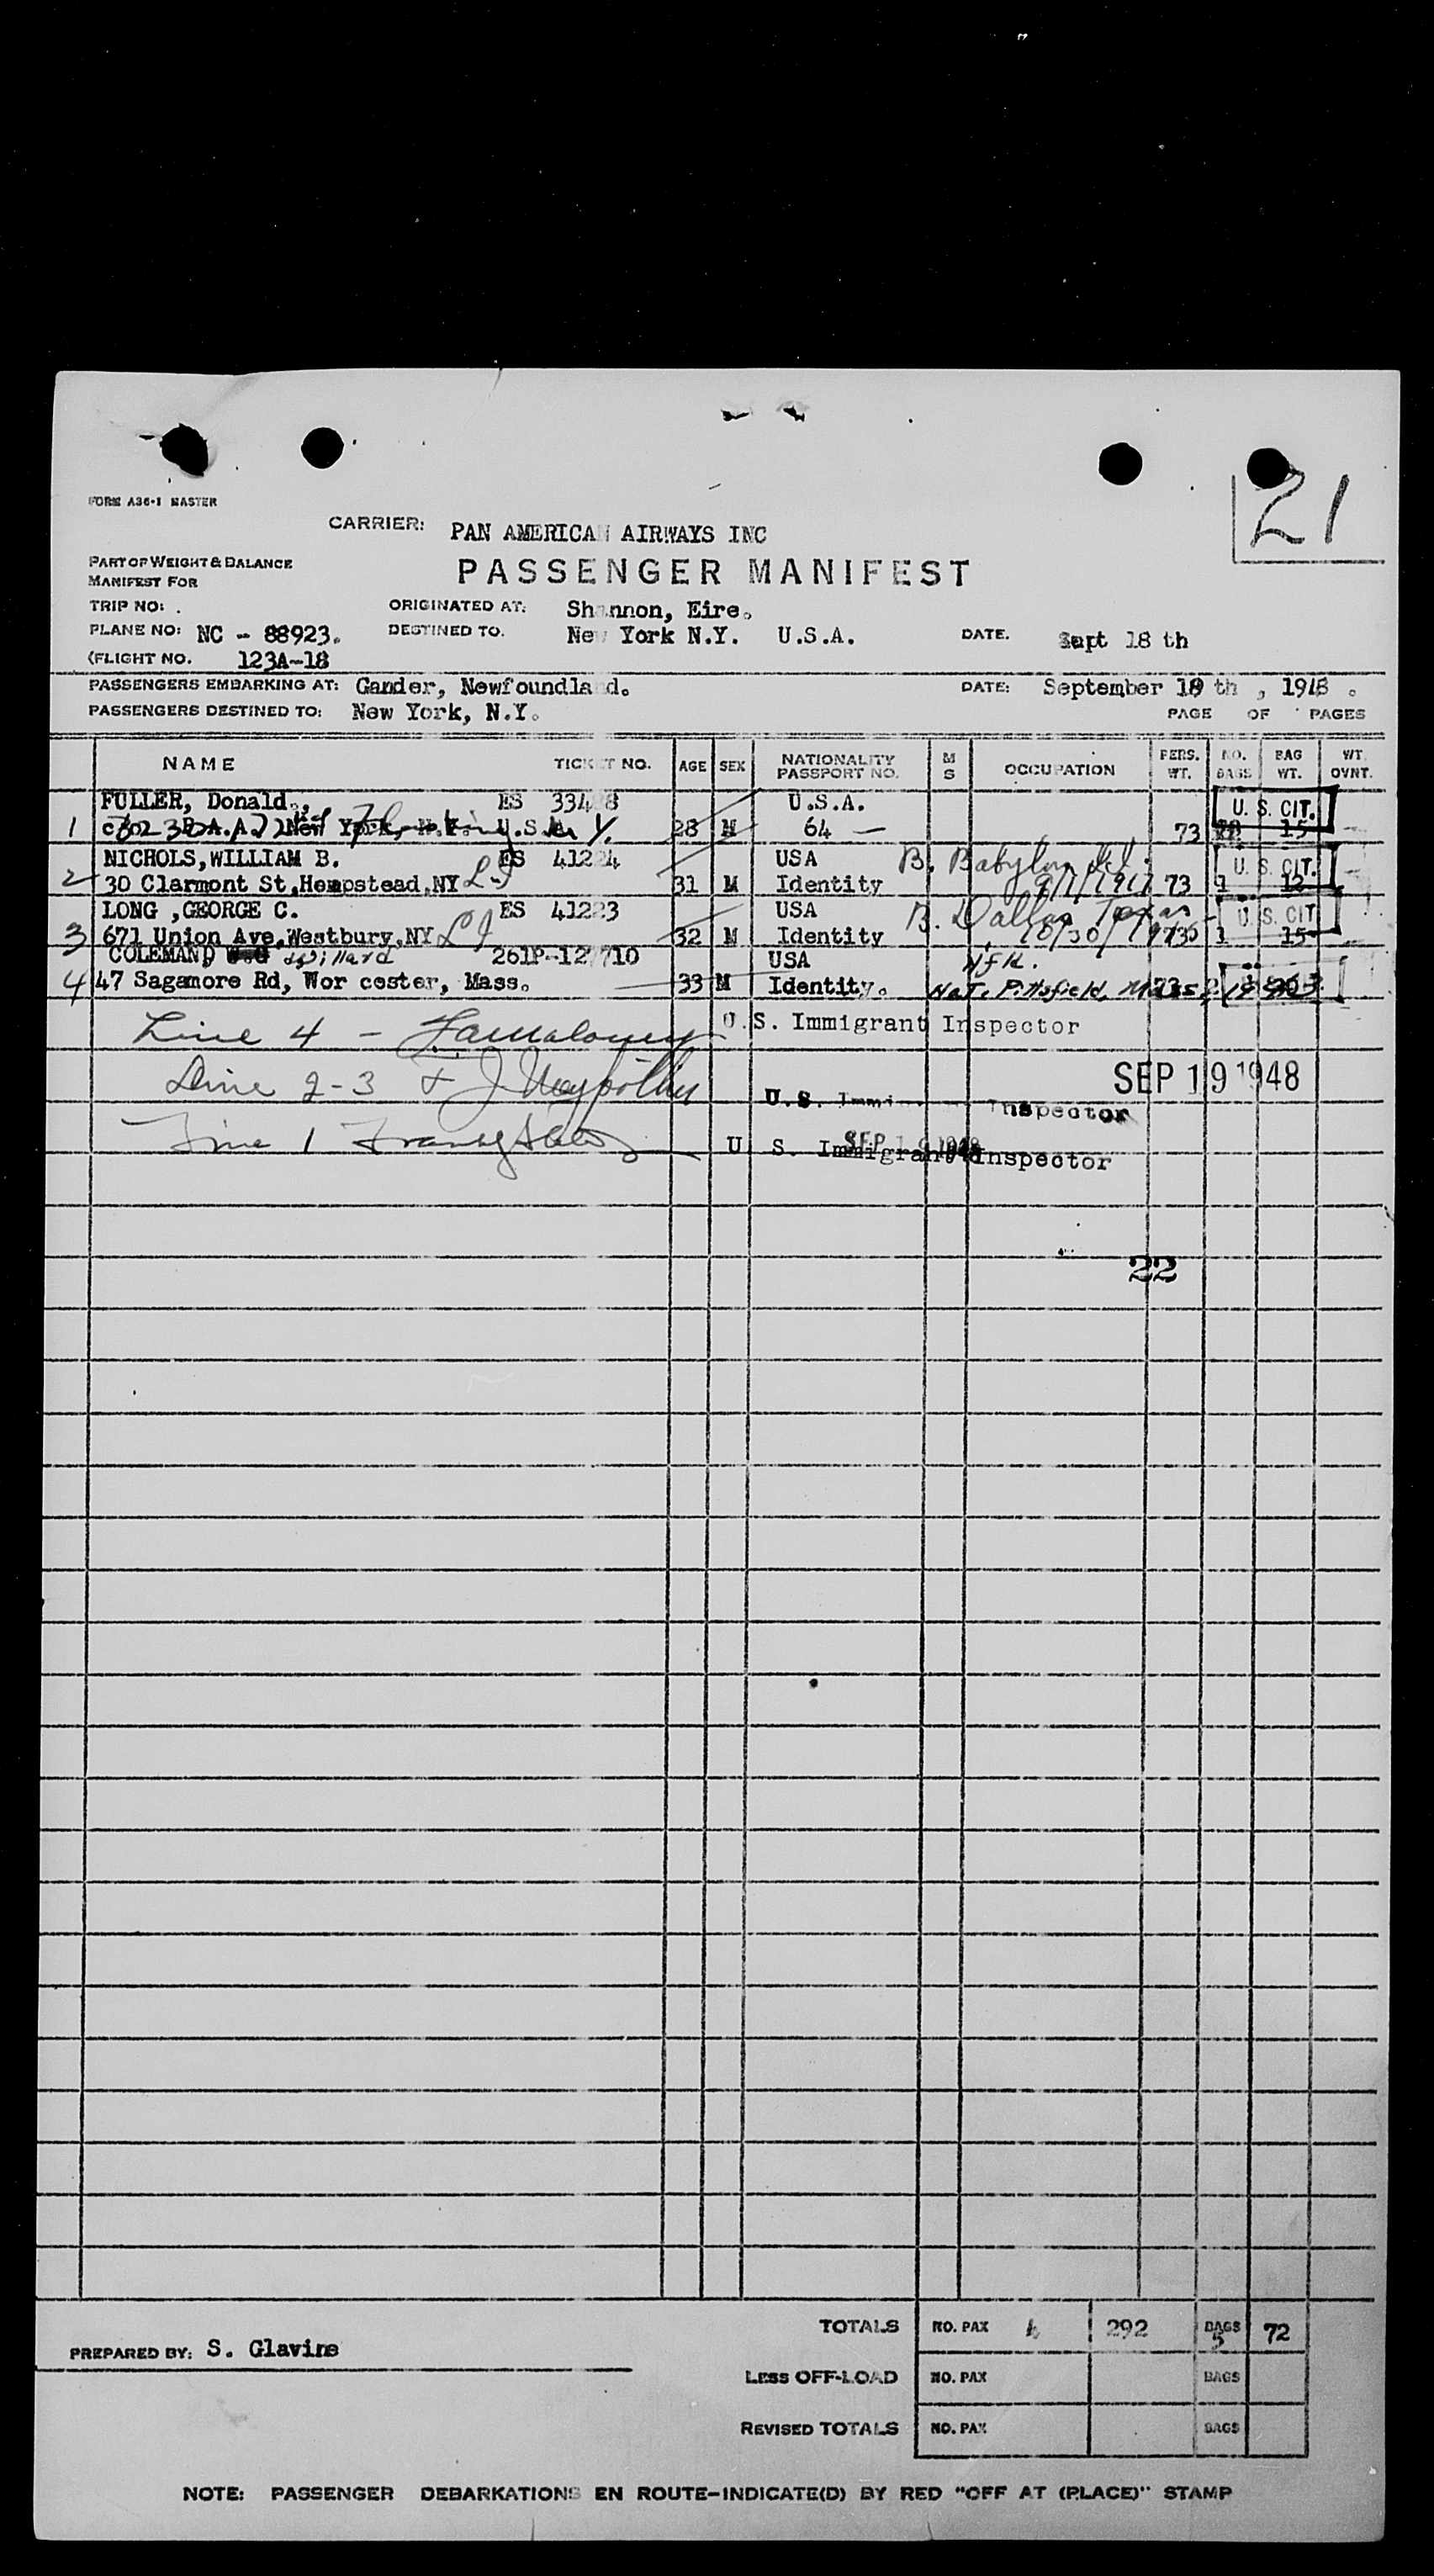 21
FORM A36-1 MASTER
CARRIER: PAN AMERICAN AIRWAYS INC
PART OF WEIGHT & BALANCE
MANIFEST FOR
PASSENGER MANIFEST
TRIP NO: .
ORIGINATED AT: Shannon, Eire.
PLANE NO: NC - 88923.
DESTINED TO. New York N.Y. U.S.A.
DATE. Sept 18 th
(FLIGHT NO. 123A-18
PASSENGERS EMBARKING AT: Gander, Newfoundland.
DATE: September 19 th , 1948 .
PASSENGERS DESTINED TO: New York, N.Y.
PAGE OF PAGES
NAME TICKET NO. AGE SEX NATIONALITY PASSPORT NO. M S OCCUPATION PERS. WT. NO. BAGS BAG WT. WT. OVNT.
FULLER, Donald., ES 33488 U.S.A. U. S. CIT.
1 New York, N.Y. U.S.A. 28 M 64 — 73 15
NICHOLS, WILLIAM B. ES 41224 USA B. Babylon U. S. CIT.
2 30 Clarmont St, Hempstead, NY L.I 31 M Identity 9/7/1917 73 1 12
LONG ,GEORGE C. ES 41223 USA B. Dallas Texas U. S. CIT
3 671 Union Ave, Westbury, NY L I 32 M Identity 10/30/ 73 1 15
COLEMAN, Willard 261P-127710 USA
4 47 Sagamore Rd, Wor cester, Mass. 33 M Identity. Nat. Pittsfield, Mass 73 2
Line 4 - U.S. Immigrant Inspector
Line 2-3 SEP 19 1948
U.S. Immi Inspector
Line 1 U S. Immigrant Inspector
SEP 19 1948
22
TOTALS NO. PAX 4 292 BAGS 5 72
PREPARED BY: S. Glavine
LESS OFF-LOAD NO. PAX BAGS
REVISED TOTALS NO. PAX BAGS
NOTE: PASSENGER DEBARKATIONS EN ROUTE-INDICATE(D) BY RED "OFF AT (PLACE)" STAMP